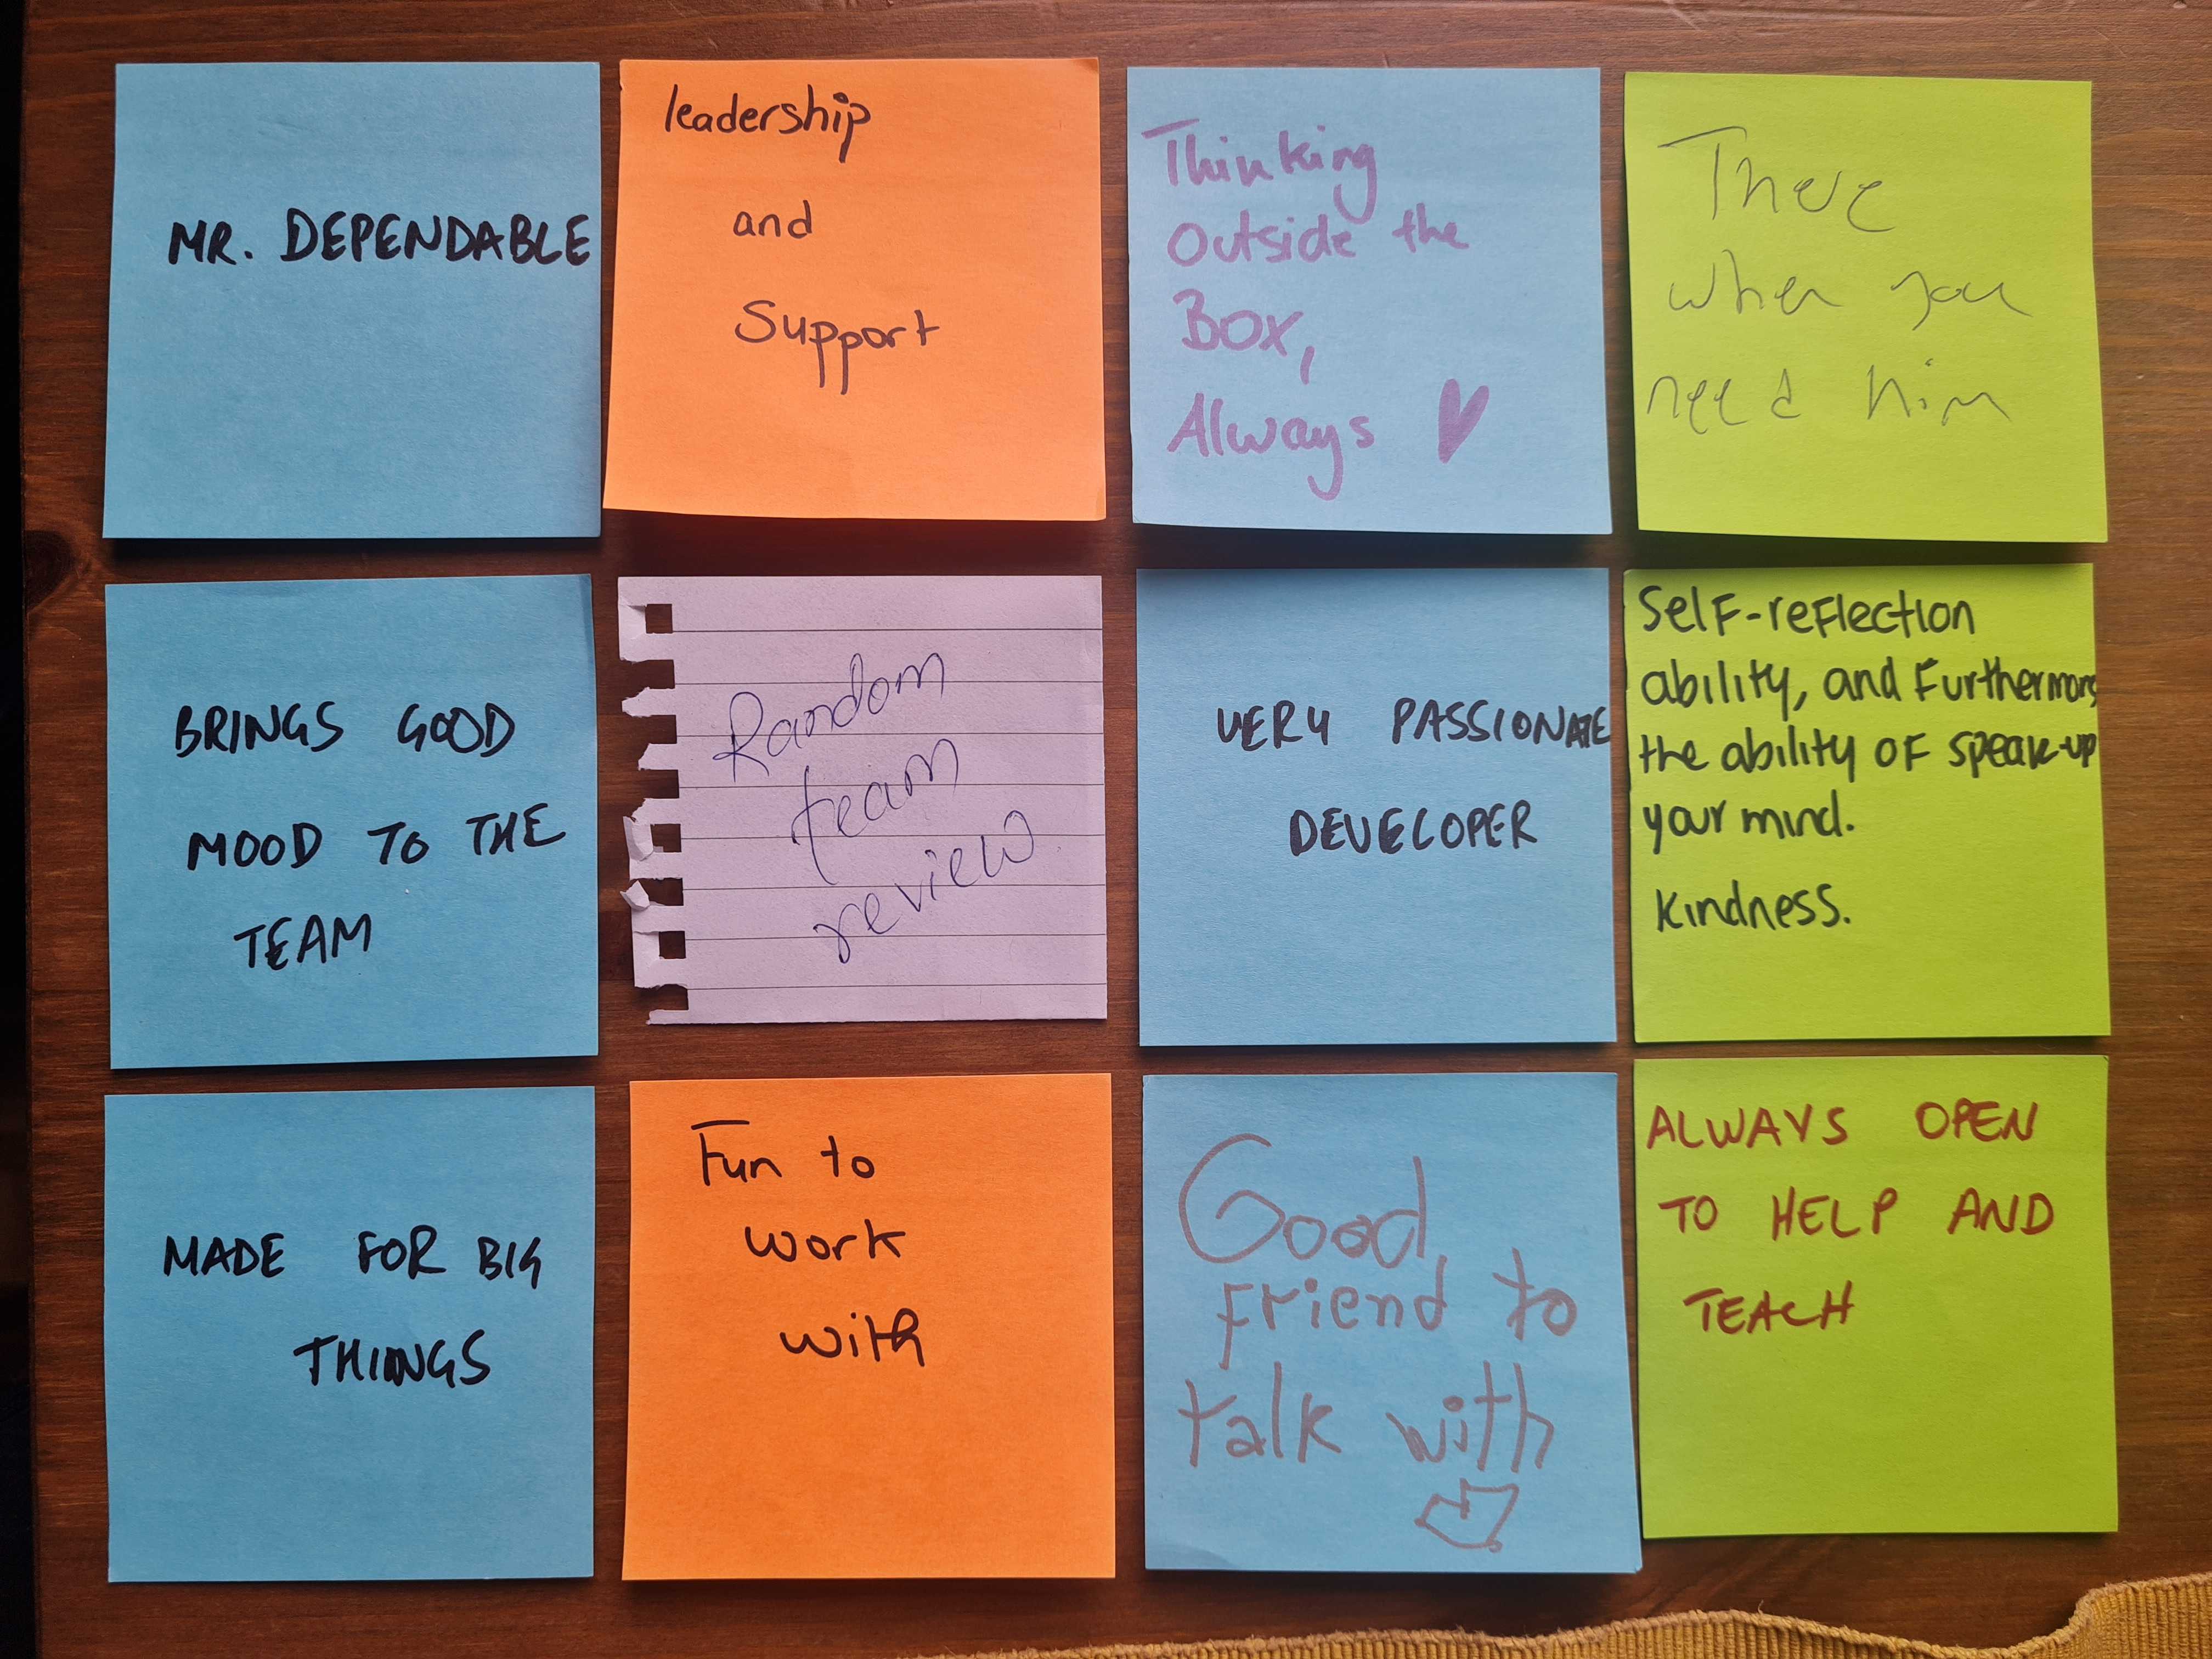 MR. DEPENDABLE
leadership
and
Support
Thinking
outside the
Box,
Always
There
when you
need him
BRINGS GOOD
MOOD TO THE
TEAM
Random
team
review.
VERY PASSIONATE
DEVELOPER
Self-reflection
ability, and Furthermore
the ability of speak-up
your mind.
Kindness.
MADE FOR BIG
THINGS
Fun to
work
with
Good
Friend to
talk with
ALWAYS OPEN
TO HELP AND
TEACH